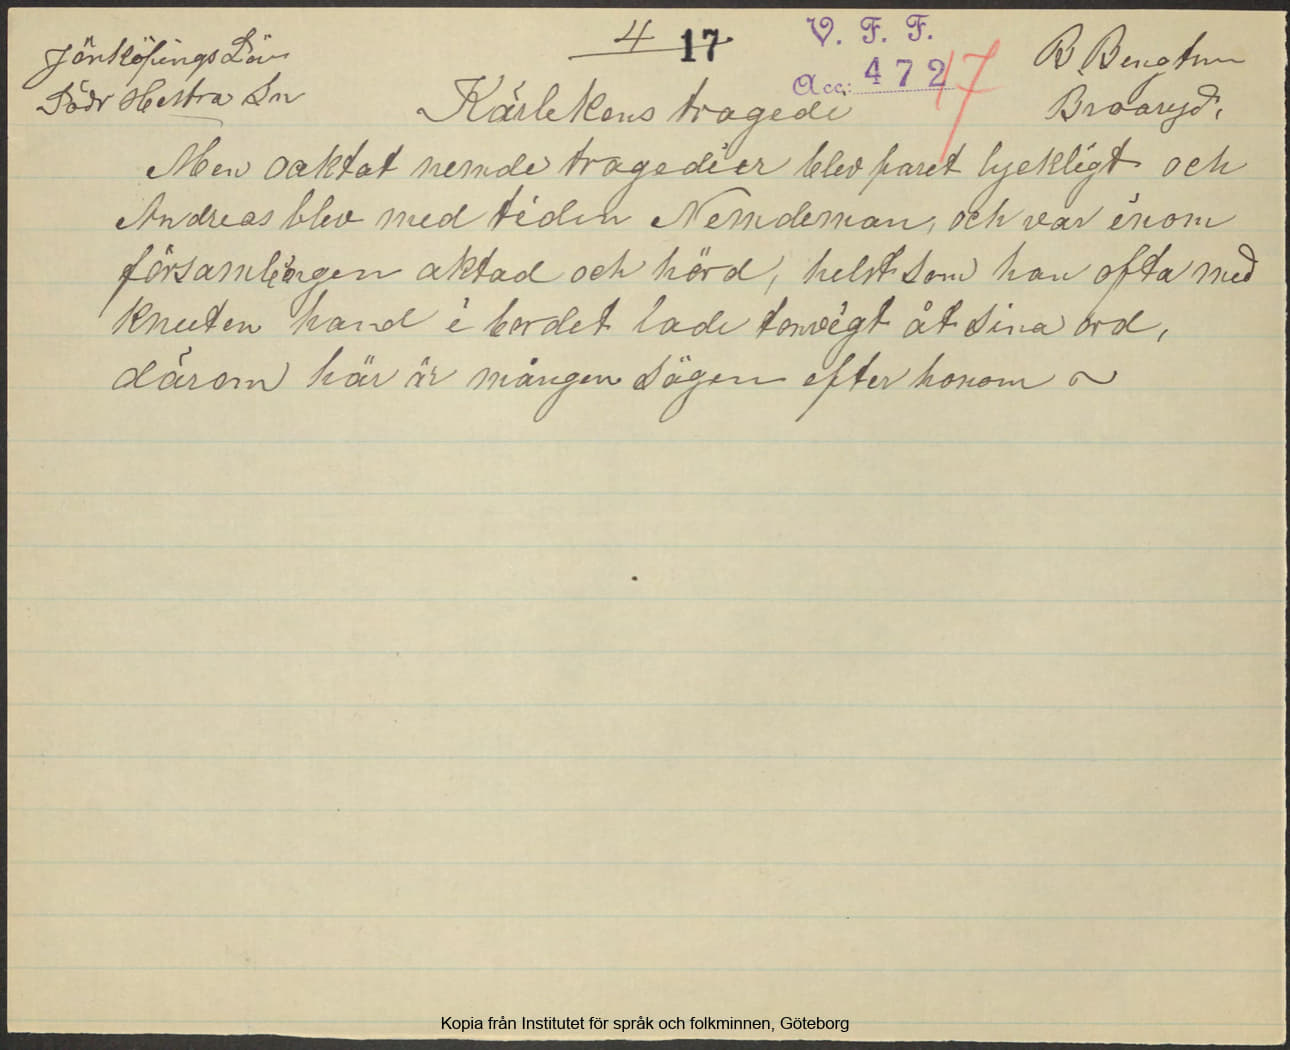 Jönköpings Län
Södr Hestra Sn
4 17
V. F. F.
Acc: 472
17
B. Bengtsson
Braaryd.
Kärlekens tragedi
Men oaktat nemde tragedier blev paret lyckligt och
Andreas blev med tiden Nemdeman, och var inom
församlingen aktad och hörd, helst som han ofta med
knuten hand i bordet lade tonvigt åt sina ord,
därom här är mången sägen efter honom ~
Kopia från Institutet för språk och folkminnen, Göteborg